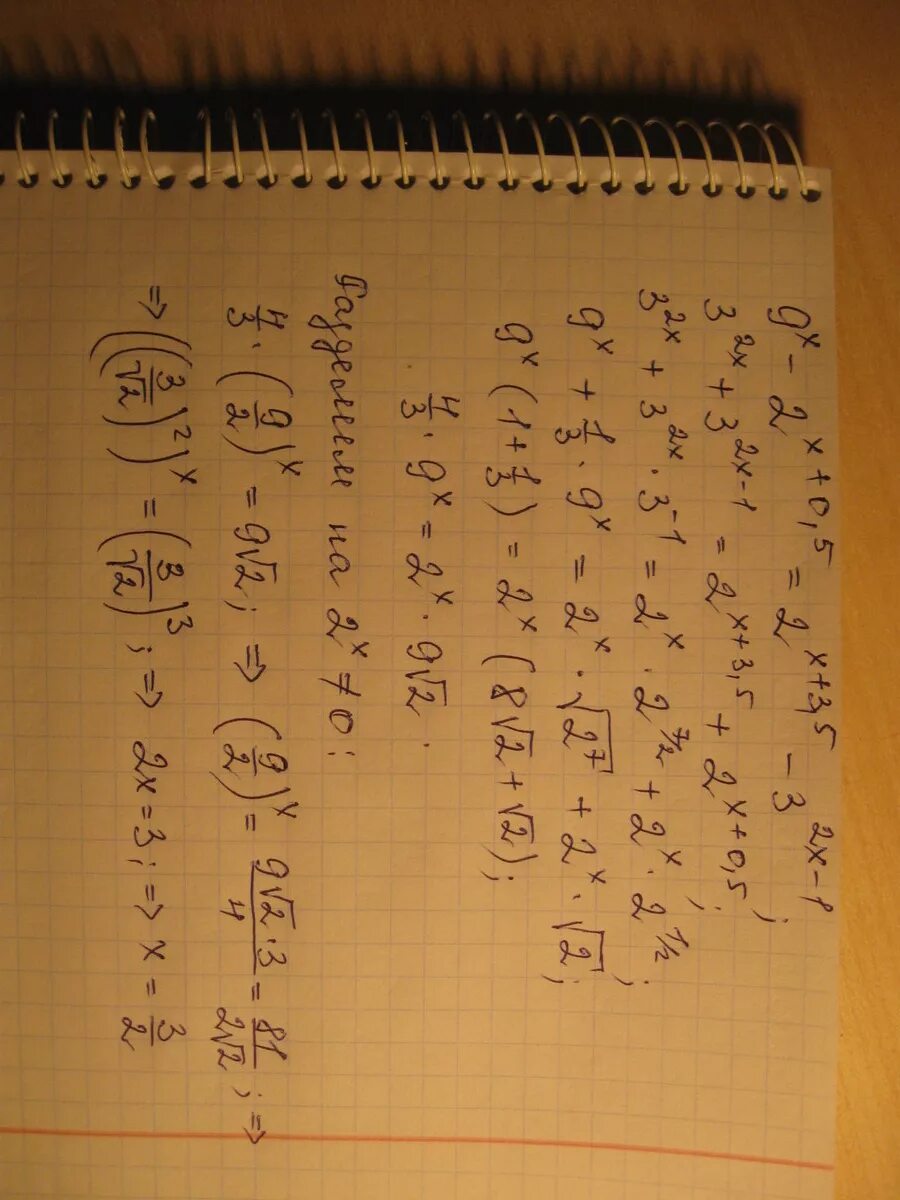 9^x - 2^{x+0,5} = 2^{x+3,5} - 3^{2x-1};
3^{2x} + 3^{2x-1} = 2^{x+3,5} + 2^{x+0,5};
3^{2x} + 3^{2x} · 3^{-1} = 2^x · 2^{7/2} + 2^x · 2^{1/2};
9^x + 1/3 · 9^x = 2^x · √(2^7) + 2^x · √2;
9^x (1 + 1/3) = 2^x (8√2 + √2);
4/3 · 9^x = 2^x · 9√2.
Разделим на 2^x ≠ 0:
4/3 · (9/2)^x = 9√2; ⇒ (9/2)^x = (9√2·3)/4 = 81/(2√2); ⇒
⇒ ((3/√2)^2)^x = (3/√2)^3; ⇒ 2x = 3; ⇒ x = 3/2